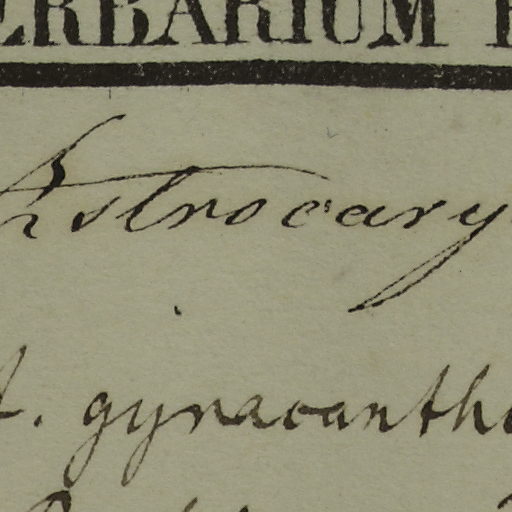 ERBARIUM
Astrocary
A. gynacanth